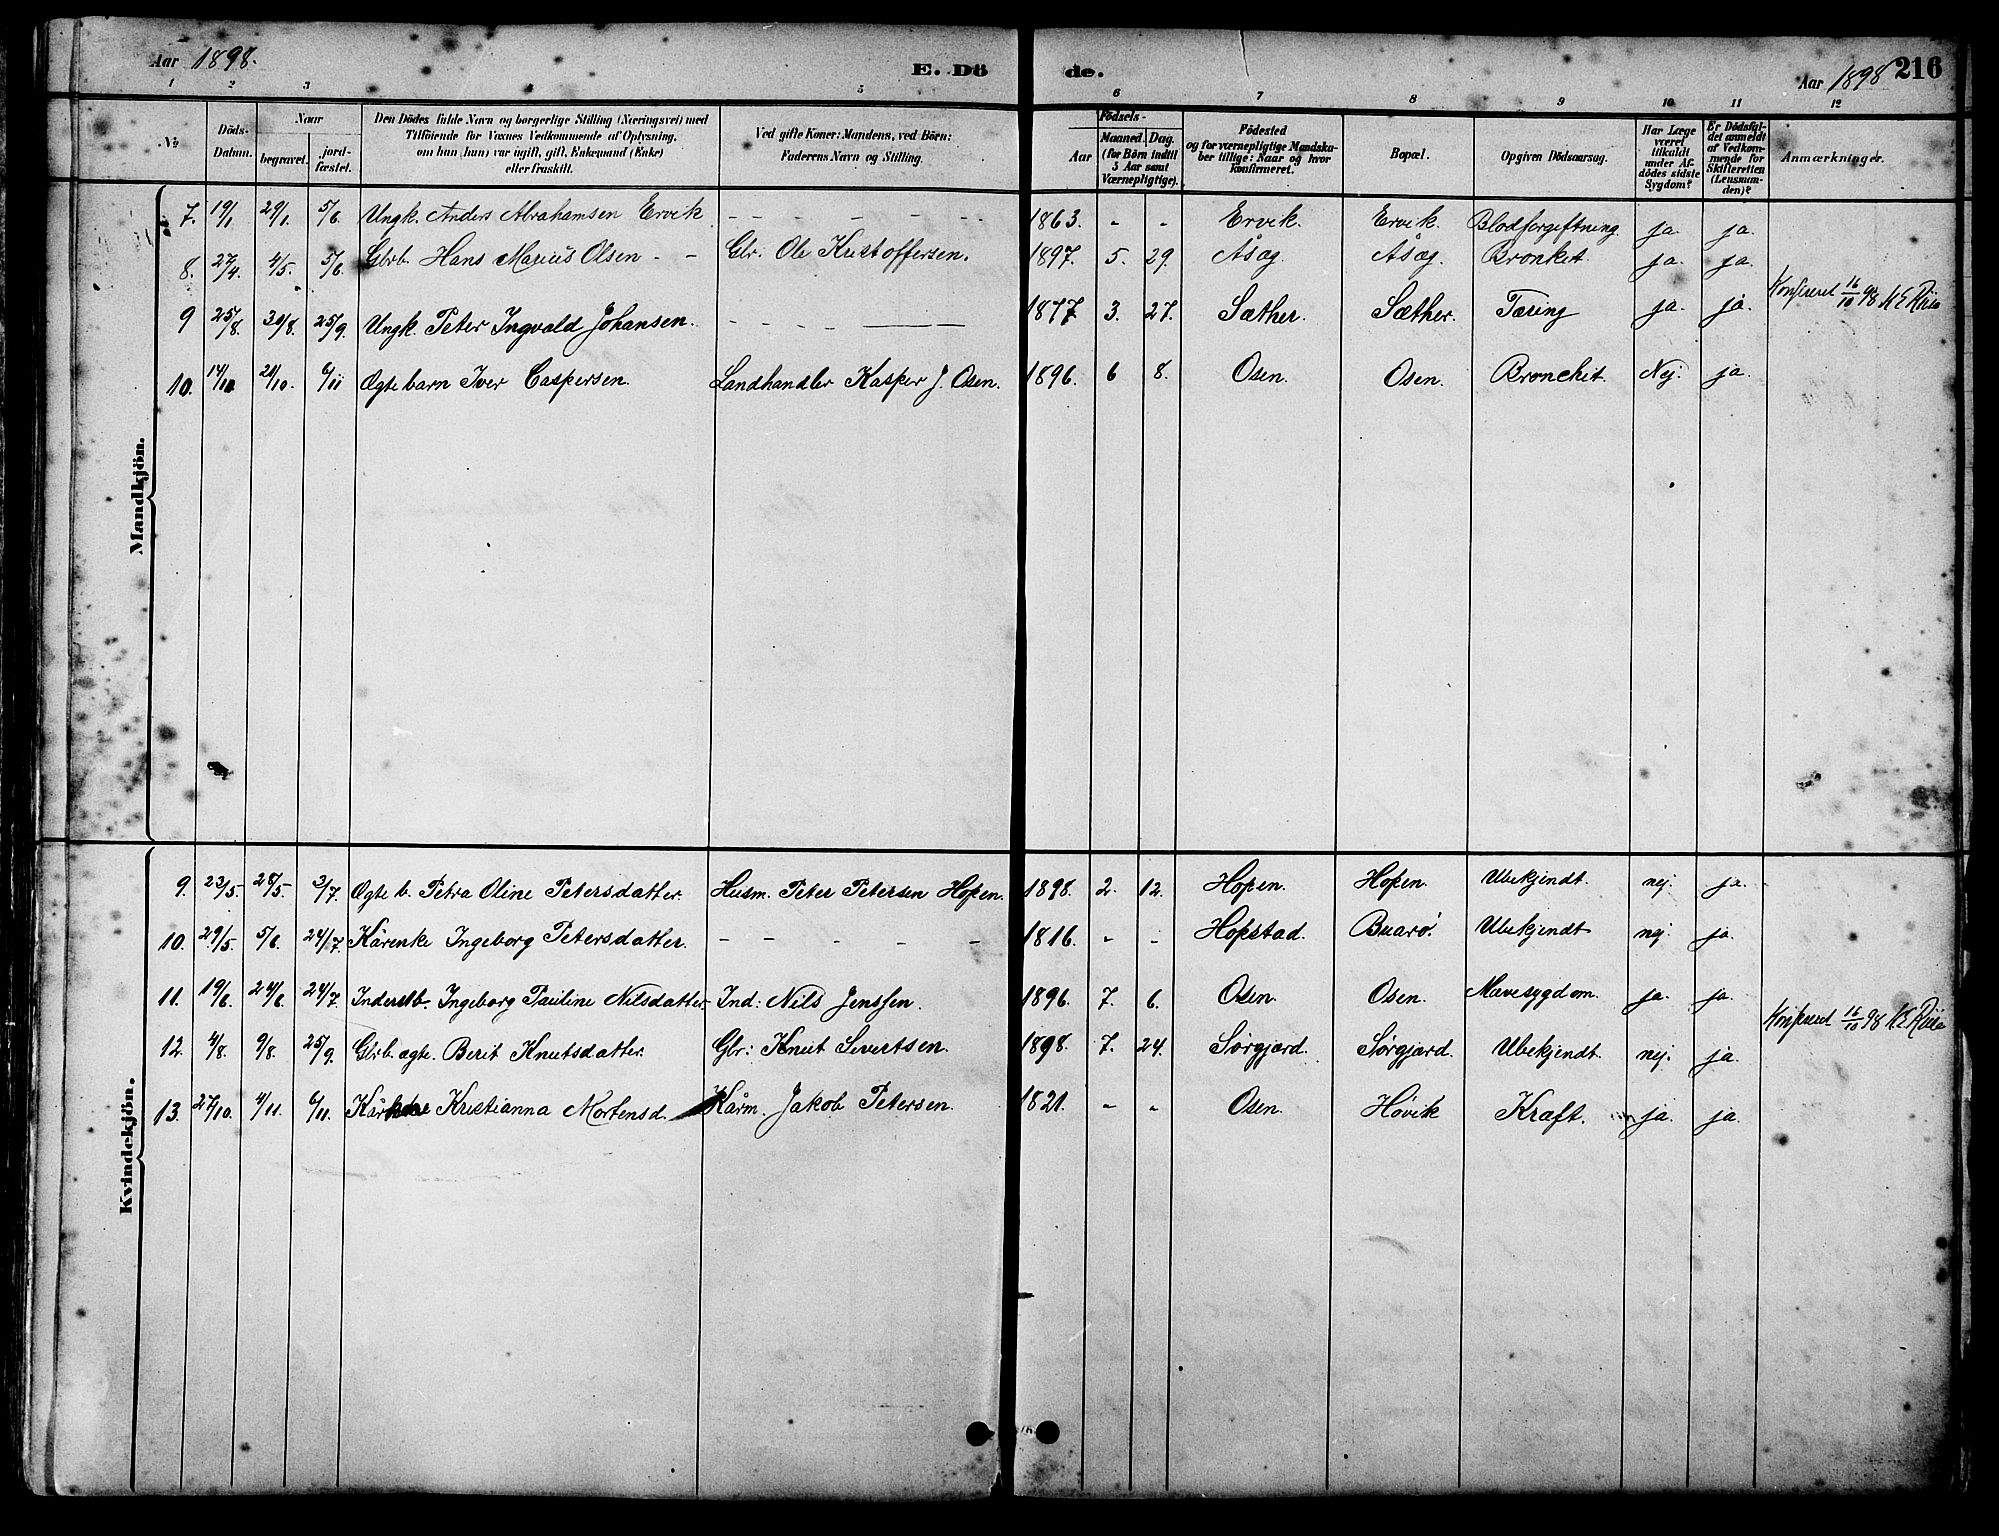 Aar 1898. E. Dö de. Aar 1898 216
1 2 3 4 5 6 7 8 9 10 11 12
№
Döds-Datum.
Naar
begravet.
jordfæstet.
Den Dödes fulde Navn og borgerlige Stilling (Næringsvei) med Tilföiende for Voxnes Vedkommende af Oplysning, om han (hun) var ugift, gift, Enkemand (Enke) eller fraskilt.
Ved gifte Koner: Mandens, ved Börn: Faderens Navn og Stilling.
Födsels-
Aar
Maaned. Dag.
(for Börn indtil 5 Aar samt Værnepligtige).
Födested og for værnepligtige Mandskaber tillige: Naar og hvor konfirmeret.
Bopæl.
Opgiven Dödsaarsag.
Har Læge været tilkaldt under Afdödes sidste Sygdom?
Er Dödsfaldet anmeldt af Vedkommende for Skifteretten (Lensmanden)?
Anmærkninger.
Mandkjön.
7. 19/1 29/1. 5/6. Ungk. Anders Abrahamsen Ervik - - - - - - 1863. - - Ervik. Ervik. Blodforgiftning. ja. ja.
8. 27/4. 4/5. 5/6. Gbrb. Hans Marius Olsen - - Gbr. Ole Kristoffersen. 1897. 5. 29. Åsæg. Åsæg. Bronkit. ja. ja.
9 25/8. 30/8. 25/9. Ungk. Peter Ingvald Johansen. - - - - - - 1877. 3. 27. Sæther. Sæther. Tæring ja. ja. Konfereret 16/10 98
10. 14/10 21/10. 6/11 Ægte barn Iver Caspersen. Landhandler Kasper J. Osen. 1896. 6 8. Osen. Osen. Bronchit. Nej. ja.
Kvindekjön.
9. 23/5. 28/5. 3/7. Ægte b. Petra Oline Petersdatter. Husm. Peter Petersen Hopen. 1898. 2. 12. Hopen. Hopen. Ubekjendt. nej. ja.
10. 29/5. 5/6. 24/7. Kårenke Ingeborg Petersdatter. - - - - - 1816. - - Hopstad. Buarö. Ubekjendt nej. ja.
11. 19/6. 24/6. 24/7. Inderstb. Ingeborg Pauline Nilsdatter. Ind: Nils Jenssen. 1896. 7. 6. Osen. Osen. Mavesygdom. ja. ja.
12. 4/8. 9/8. 25/9. Gbrb. ægte. Berit Knutsdatter. Gbr: Knut Sivertsen. 1898. 7. 24. Sørgjærd. Sørgjærd. Ubekjendt. nej. ja. Konfereret 16/10 98
13. 27/10. 4/11. 6/11. Kristianna Mortensd. Kårm. Jakob Petersen. 1821. - - Osen. Hövik Kræft. ja. ja.